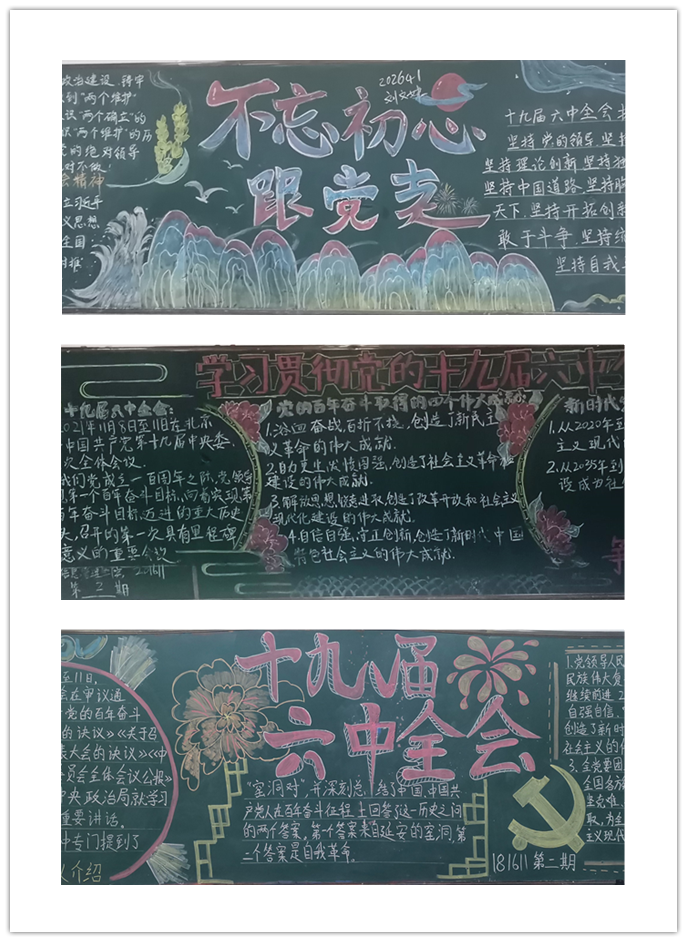 政治建设,铸牢
到“两个维护”
议“两个确立”的
识“两个维护”的历
党的绝对领导
对不做!
会精神
立习近平
义思想
全国
不忘初心
跟党走
202641
十九届六中全会
坚持党的领导,坚持
坚持理论创新,坚持独
坚持中国道路,坚持胸
天下,坚持开拓创新
敢于斗争,坚持统
坚持自我
学习贯彻党的十九届六中
十九届六中全会:
2021年11月8日至11日在北京
中国共产党第十九届中央委
次全体会议.
我们党成立一百周年之际,党领导
现第一个百年奋斗目标,向着实现第
百年奋斗目标,迈进的重大历史
大,召开的第一次具有里程碑
意义的重要会议
201611
第三期
党的百年奋斗取得的四个伟大成就
1.浴血奋战,百折不挠,创造了新民主
义革命的伟大成就.
2.自力更生,发愤图强,创造了社会主义革命和
建设的伟大成就.
3.解放思想,锐意进取,创造了改革开放和社会主义
现代化建设的伟大成就.
4.自信自强,守正创新,创造了新时代中国
特色社会主义的伟大成就.
新时代
1.从2020年至
主义现代
2.从2035年到
设成为社
至11日,
会在审议通
党的百年奋斗
的决议》《关于召
表大会的决议》《中
员会全体会议公报》
中央政治局就学习
重要讲话。
中专门提到了
介绍
十九届
六中全会
“窑洞对”,并深刻总结了中国,中国共
产党人在百年奋斗征程上回答这一历史之问
的两个答案。第一个答案来自延安的窑洞,第
二个答案是自我革命。
1.党领导人民
民族伟大复
继续前进 2.
自强自信,
创造了新时
社会主义的伟
3.全党要团
全国各族
坚克难,
取,为全
主义现代
181611 第二期